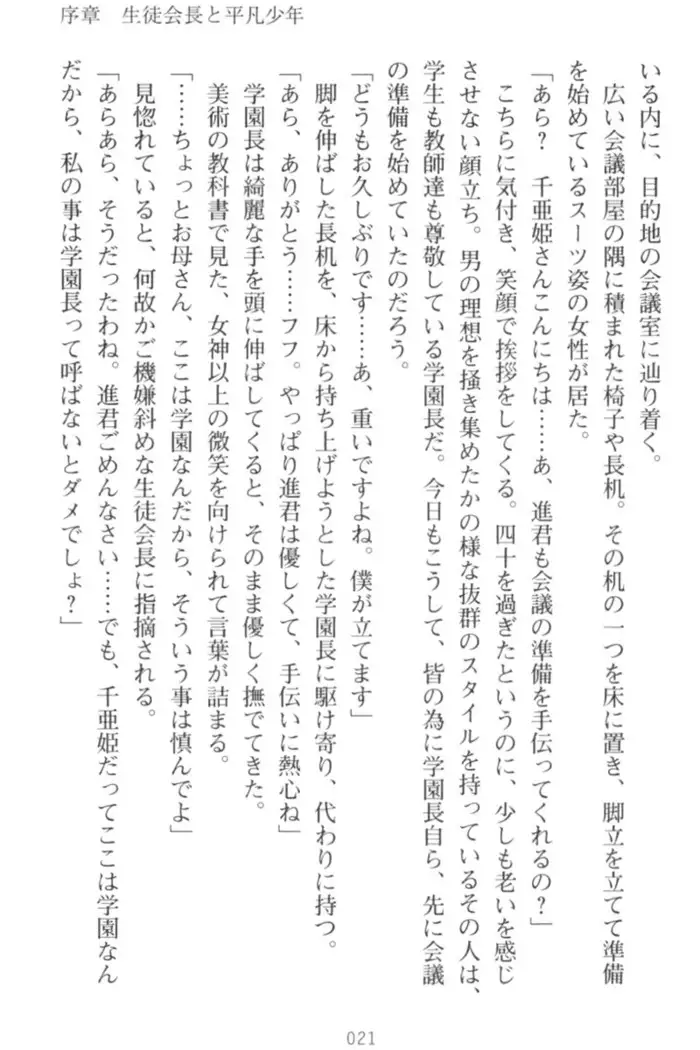 序章　生徒会長と平凡少年
いる内に、目的地の会議室に辿り着く。
　広い会議部屋の隅に積まれた椅子や長机。その机の一つを床に置き、脚立を立てて準備
を始めているスーツ姿の女性が居た。
「あら？　千亜姫さんこんにちは……あ、進君も会議の準備を手伝ってくれるの？」
　こちらに気付き、笑顔で挨拶をしてくる。四十を過ぎたというのに、少しも老いを感じ
させない顔立ち。男の理想を掻き集めたかの様な抜群のスタイルを持っているその人は、
学生も教師達も尊敬している学園長だ。今日もこうして、皆の為に学園長自ら、先に会議
の準備を始めていたのだろう。
「どうもお久しぶりです……あ、重いですよね。僕が立てます」
　脚を伸ばした長机を、床から持ち上げようとした学園長に駆け寄り、代わりに持つ。
「あら、ありがとう……フフ。やっぱり進君は優しくて、手伝いに熱心ね」
　学園長は綺麗な手を頭に伸ばしてくると、そのまま優しく撫でてきた。
　美術の教科書で見た、女神以上の微笑を向けられて言葉が詰まる。
「……ちょっとお母さん、ここは学園なんだから、そういう事は慎んでよ」
　見惚れていると、何故かご機嫌斜めな生徒会長に指摘される。
「あらあら、そうだったわね。進君ごめんなさい……でも、千亜姫だってここは学園なん
だから、私の事は学園長って呼ばないとダメでしょ？」
021